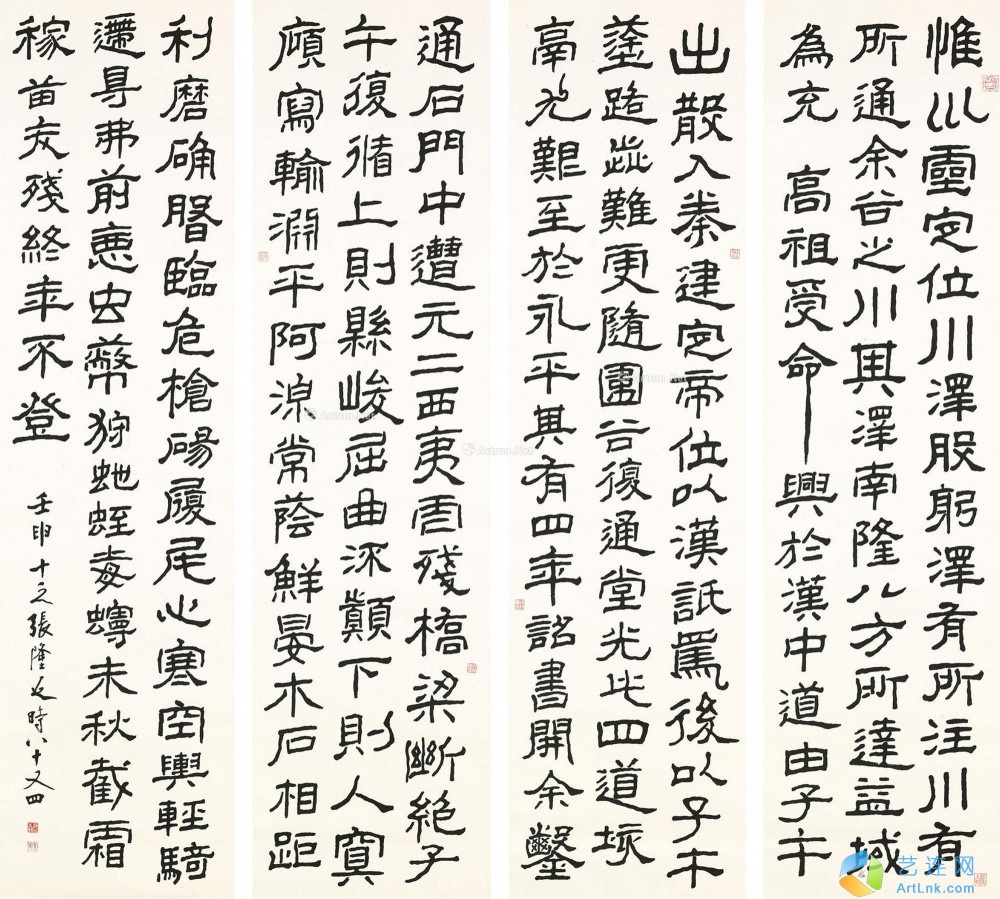 惟巛靈定位川澤股躬澤有所注川有
所通余谷之川其澤南隆八方所達益域
為充 高祖受命興於漢中道由子午
出散入秦建定帝位以漢詆焉後以子午
塗路歮難更隨圍谷復通堂光此四道垓
鬲尤艱至於永平其有四年詔書開余鑿
通石門中遭元二西夷虐殘橋梁斷絕子
午復循上則縣峻屈曲流顛下則人冥
廎寫輸淵平阿湶常蔭鮮晏木石相距
利磨确磐臨危槍碭履尾心寒空輿輕騎
遰㝵弗前惡虫弊狩虵蛭毒蟃未秋截霜
稼苗夭殘終年不登
壬申十之張隆延時八十又四
Artron.Net
Artron.Net
Artron.Net
艺连网
ArtLnk.com